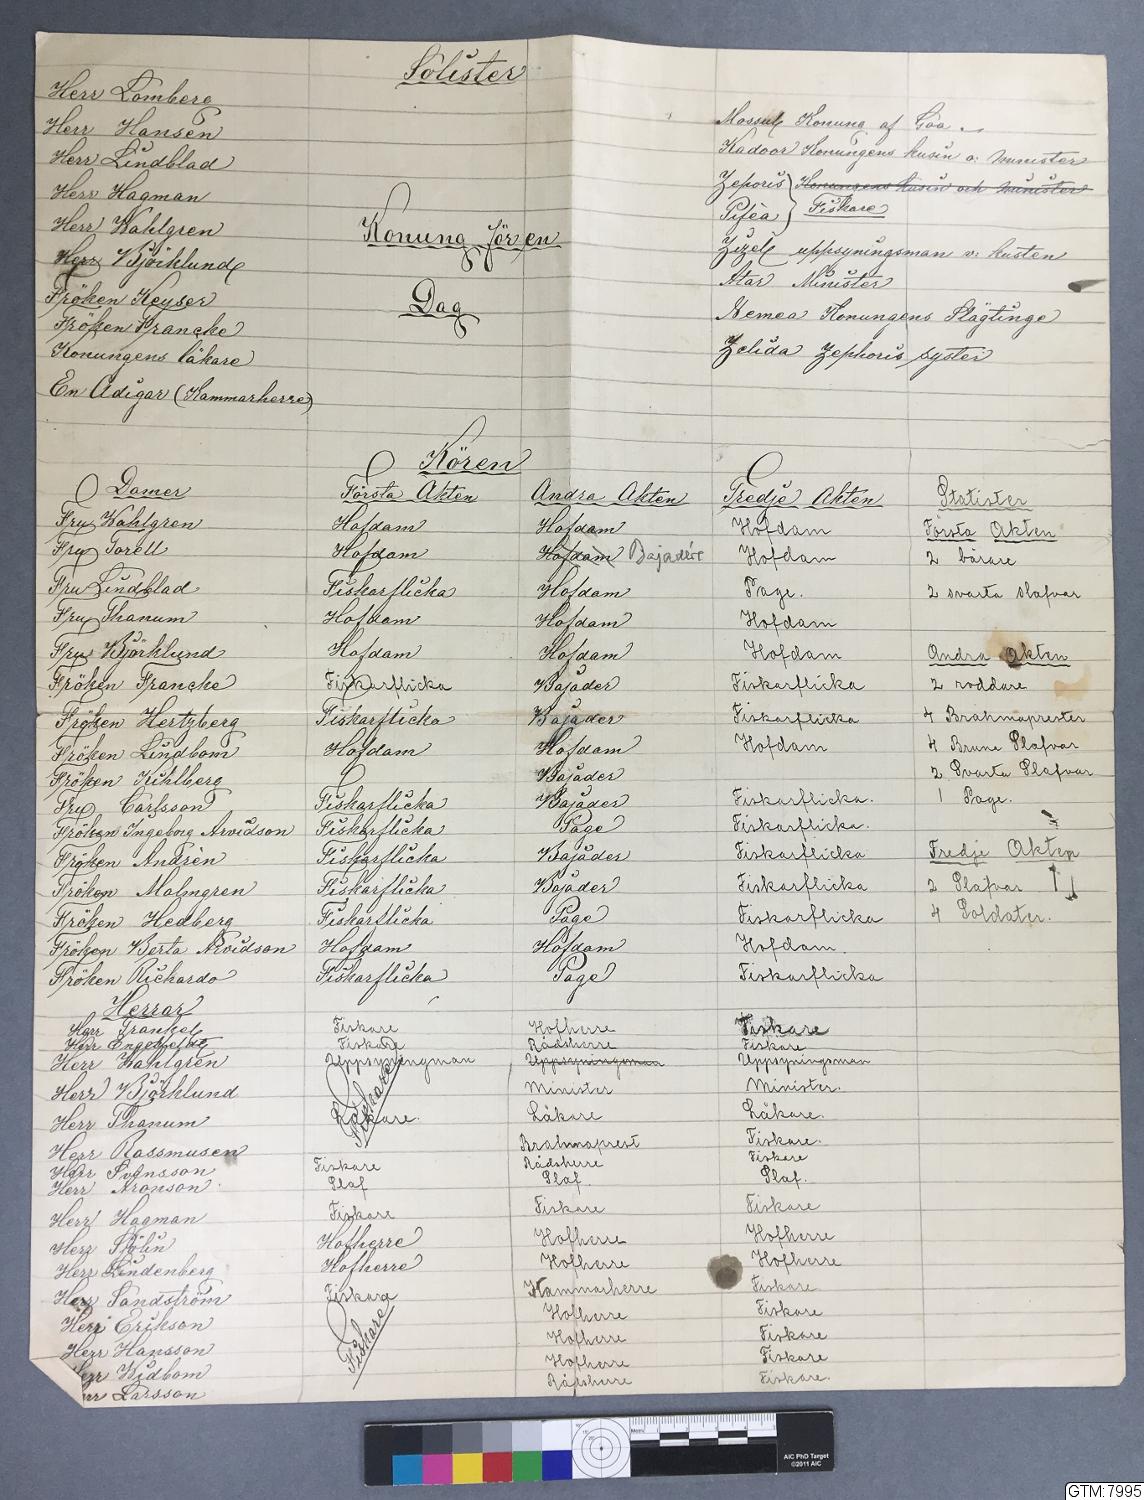 Solister
Herr Lomberg
Herr Hansen Mossul Konung af Goa.
Herr Lindblad Kadoor Konungens kusin o. minister
Herr Hagman Zephoris Konungens kusin och minister
Herr Wahlgren Konung för en Pifèa Fiskare
Herr Björklund Zizel uppsyningsman v. kusten
Fröken Keyser Dag Atar Minister
Fröken Francke Nemea Konungens Slägtinge
Konungens läkare Zelida Zephoris syster
En Adigar (Kammarherre)
Kören
Damer Första Akten Andra Akten Tredje Akten Statister
Fru Wahlgren Hofdam Hofdam Hofdam Första Akten
Fru Torell Hofdam Hofdam Bajadére Hofdam 2 bärare
Fru Lindblad Fiskarflicka Hofdam Page. 2 svarta slafvar
Fru Thanum Hofdam Hofdam Hofdam
Fru Björklund Hofdam Hofdam Hofdam Andra Akten
Fröken Francke Fiskarflicka Bajader Fiskarflicka 2 roddare
Fröken Hertzberg Fiskarflicka Bajader Fiskarflicka 4 Brahmaprester
Fröken Lindbom Hofdam Hofdam Hofdam 4 Bruna Slafvar
Fröken Kihlberg Bajader 2 Svarta Slafvar
Fru Carlsson Fiskarflicka Bajader Fiskarflicka. 1 Page.
Fröken Ingeborg Arvidson Fiskarflicka Page Fiskarflicka.
Fröken Andrèn Fiskarflicka Bajader Fiskarflicka Tredje Akten
Fröken Malmgren Fiskarflicka Bajader Fiskarflicka 2 Slafvar
Fröken Hedberg Fiskarflicka Page Fiskarflicka 4 Soldater.
Fröken Berta Arvidson Hofdam Hofdam Hofdam
Fröken Richardo Fiskarflicka Page Fiskarflicka
Herrar
Herr Frankel Fiskare Hofherre Fiskare
Herr Fiskare Rådsherre Fiskare
Herr Wahlgren Uppsyningman Uppsyningsman Uppsyningsman
Herr Björklund Fiskare Minister Minister.
Herr Thanum Läkare. Läkare Läkare.
Herr Rassmusen Brahmaprest Fiskare.
Herr Svensson Fiskare Rådsherre Fiskare
Herr Aronson Slaf Slaf. Slaf.
Herr Hagman Fiskare Fiskare Fiskare
Herr Hofherre Hofherre Hofherre
Herr Lindenberg Hofherre Hofherre Hofherre
Herr Sandström Fiskare Kammarherre Fiskare
Herr Erikson Fiskare Hofherre Fiskare
Herr Hansson Hofherre Fiskare
Herr Widbom Hofherre Fiskare
Larsson Rådsherre Fiskare.
AIC PhD Target
©2011 AIC
GTM:7995